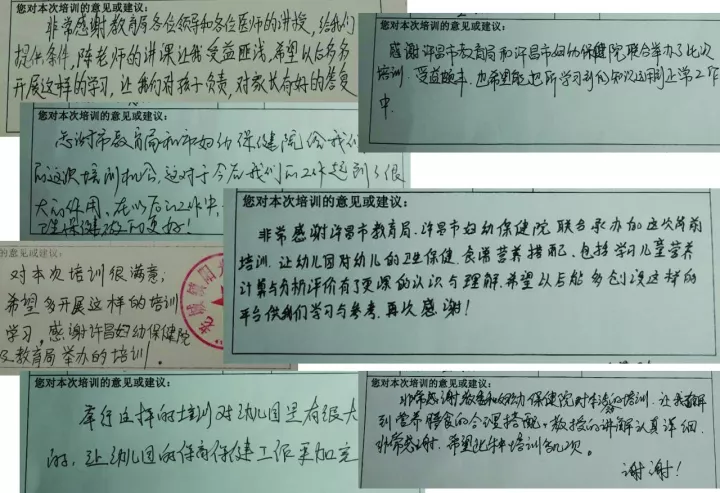 您对本次培训的意见或建议:
非常感谢教育局各位领导和各位医师的讲授,给我们
提供条件,陈老师的讲课让我受益匪浅,希望以后多多
开展这样的学习,让我们对孩子负责,对家长有好的答复
您对本次培训的意见或建议:
感谢许昌市教育局和许昌市妇幼保健院联合举办了此次
培训,受益颇丰,也希望能把所学习到的知识运用到正常工作
中.
您对本次培训的意见或建议:
感谢市教育局和市妇幼保健院给我们
的这次培训机会,这对于今后我们的工作起到了很
大的作用,在以后的工作中,
保健做的更好!
您对本次培训的意见或建议:
非常感谢许昌市教育局、许昌市妇幼保健院联合承办
培训,让幼儿园对幼儿的卫生保健、食谱营养搭配,包括学习儿童营养
计算与分析评价有了更深的认识与理解,希望以后能多创设这样的
平台供我们学习与参考,再次感谢!
的意见或建议:
对本次培训很满意;
希望多开展这样的培训
学习,感谢许昌妇幼保健院
及教育局举办的培训.
您对本次培训的意见或建议:
举行这样的培训对幼儿园是有很大
的,让幼儿园的保育保健工作更加完
您对本次培训的意见或建议:
非常感谢教育局和妇幼保健院对本次的培训,让我了解
到营养膳食的合理搭配,教授的讲解认真详细,
非常感谢,希望此年培训多几次。
谢谢!